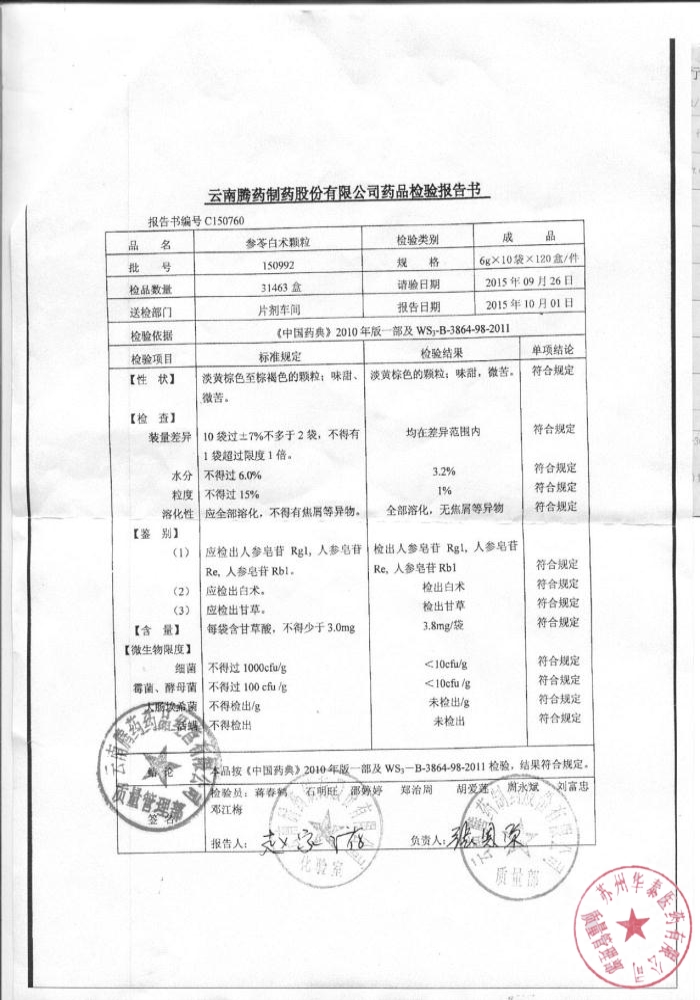 云南腾药制药股份有限公司药品检验报告书
报告书编号 C150760
品 名 参苓白术颗粒 检验类别 成 品
批 号 150992 规 格 6g×10袋×120盒/件
检品数量 31463 盒 请验日期 2015 年 09 月 26 日
送检部门 片剂车间 报告日期 2015 年 10 月 01 日
检验依据 《中国药典》2010 年版一部及 WS₃-B-3864-98-2011
检验项目 标准规定 检验结果 单项结论
【性 状】 淡黄棕色至棕褐色的颗粒;味甜、 淡黄棕色的颗粒;味甜,微苦。 符合规定
微苦。
【检 查】
装量差异 10 袋过±7%不多于 2 袋,不得有 均在差异范围内 符合规定
1 袋超过限度 1 倍。
水分 不得过 6.0% 3.2% 符合规定
粒度 不得过 15% 1% 符合规定
溶化性 应全部溶化,不得有焦屑等异物。 全部溶化,无焦屑等异物 符合规定
【鉴 别】
(1) 应检出人参皂苷 Rg1, 人参皂苷 检出人参皂苷 Rg1, 人参皂苷
Re, 人参皂苷 Rb1。 Re, 人参皂苷 Rb1 符合规定
(2) 应检出白术。 检出白术 符合规定
(3) 应检出甘草。 检出甘草 符合规定
【含 量】 每袋含甘草酸,不得少于 3.0mg 3.8mg/袋 符合规定
【微生物限度】
细菌 不得过 1000cfu/g <10cfu/g 符合规定
霉菌、酵母菌 不得过 100 cfu /g <10cfu /g 符合规定
大肠埃希菌 不得检出/g 未检出/g 符合规定
活螨 不得检出 未检出 符合规定
结论 本品按《中国药典》2010 年版一部及 WS₃-B-3864-98-2011 检验,结果符合规定。
签名 检验员:蒋春鹤 石明旺 邵婷婷 郑治周 胡爱莲 周永斌 刘富忠
邓江梅
报告人: 负责人:
云南腾药制药股份有限公司
质量管理部
化验室
质量部
苏州华泰医药有限公司
质量管理部